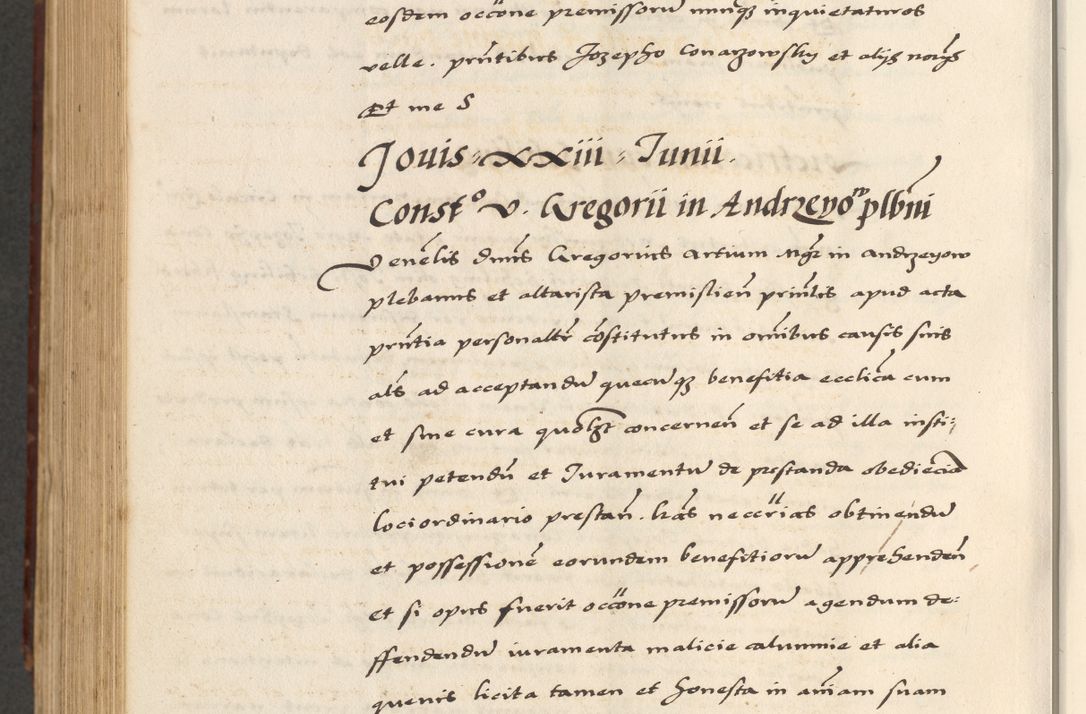 eosdem occone premissoru nunqz inquietaturos
velle. prntibus Jozepho Conarzowsky et alijs
Et me S
Jouis xxiii Junii.
Constº v. Gregorii in Andrzeyoⁿ plbni
Venelis dnus Gregorius artium mgr in andrzeyow
plebanus et altarista premislien prinlis apud acta
prntia personalitr constitutus in omibus causis suis
als ad acceptandu quecuqz benefitia ecclica cum
et sine cura concernen et se ad illa insti:
tui petendu et Iuramentu de prestanda obediecia
loci ordinario prestan. lras neccrias obtinendu
et possessione eorundem benefitioru apprehenden
et si opus fuerit occone premissoru agendum de:
ffendendu iuramenta malicie calumnie et alia
quevis licita tamen et honesta in aniam suam